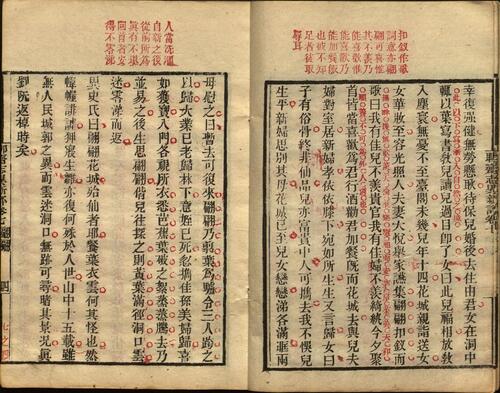 扣釵作歌
詞意亦翩
翩可喜惟
其不羨乃
能喜歡惟
能喜歡乃
能加餐飯
也彼不知
足者徒取
辱耳
幸復强健無勞懸耿待保兒婚後去住由君女在洞中
輒以葉寫書教兒讀兒過目即了女曰此兒福相放教
入塵寰無憂不至臺閣未幾兒年十四花城親詣送女
女華妝至容光照人夫妻大悅舉家讌集翩翩扣釵而
歌曰我有佳兒不羨貴官我有佳婦不羨綺紈今夕聚
首皆當喜歡為君行酒勸君加餐既而花城去與兒夫
婦對室居新婦孝依依膝下宛如所生生又言歸女曰
子有俗骨終非仙品兒亦富貴中人可攜去我不悞兒
生平新婦思別其母花城已至兒女戀戀涕各滿眶兩
人當洗濯
自新之後
從前所為
真有不堪
回首者安
得不零涕
母慰之曰暫去可復來翩翩乃剪葉為驢令三人跨之
以歸大業已老歸林下意姪已死忽攜佳孫美婦歸喜
如獲寶入門各視所衣悉芭蕉葉破之絮蒸蒸騰去乃
並易之後生思翩翩偕兒往探之則黃葉滿徑洞口雲
迷零涕而返
異史氏曰翩翩花城殆仙者耶餐葉衣雲何其怪也然
幃幄誹謔狎寢生雛亦復何殊於人世山中十五載雖
無人民城郭之異而雲迷洞口無跡可尋睹其景況真
劉阮返棹時矣
翩翩
四